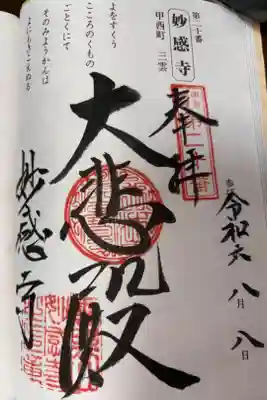 第二十番
妙感寺
甲西町 三雲
奉拝
令和六
八月
八日
大悲殿
妙感寺
よをすくう
こころのくもの
ごとくにて
そのみようかんは
よにもきこえぬる